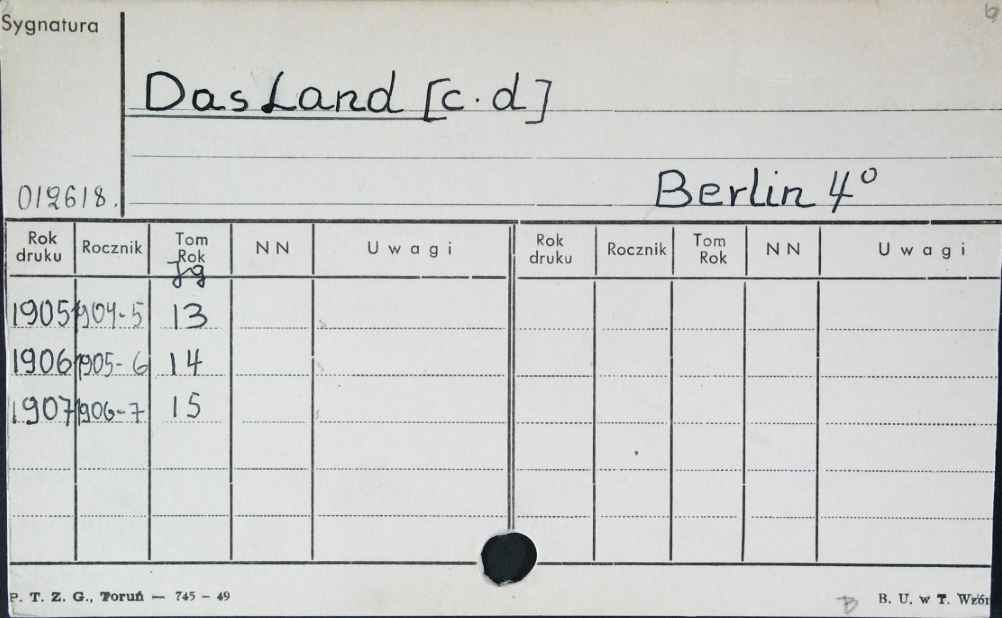 Sygnatura
6
Das Land [c.d]
012618.
Berlin 4°
Rok druku Rocznik Tom Rok Jg NN Uwagi Rok druku Rocznik Tom Rok NN Uwagi
1905 1904-5 13
1906 1905-6 14
1907 1906-7 15
P. T. Z. G., Toruń — 745 – 49
B. U. w T.